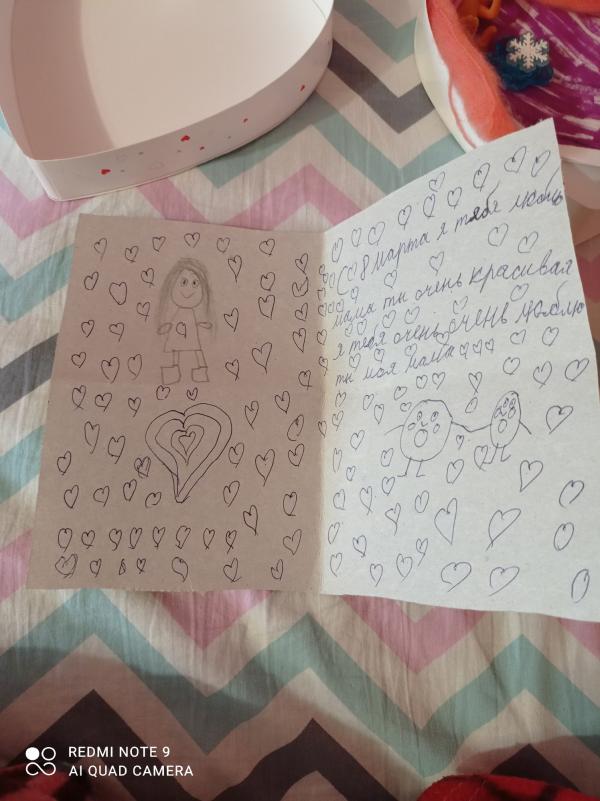 С 8 марта я тебя люблю
мама ты очень красивая
я тебя очень очень люблю
ты моя мама
REDMI NOTE 9
AI QUAD CAMERA